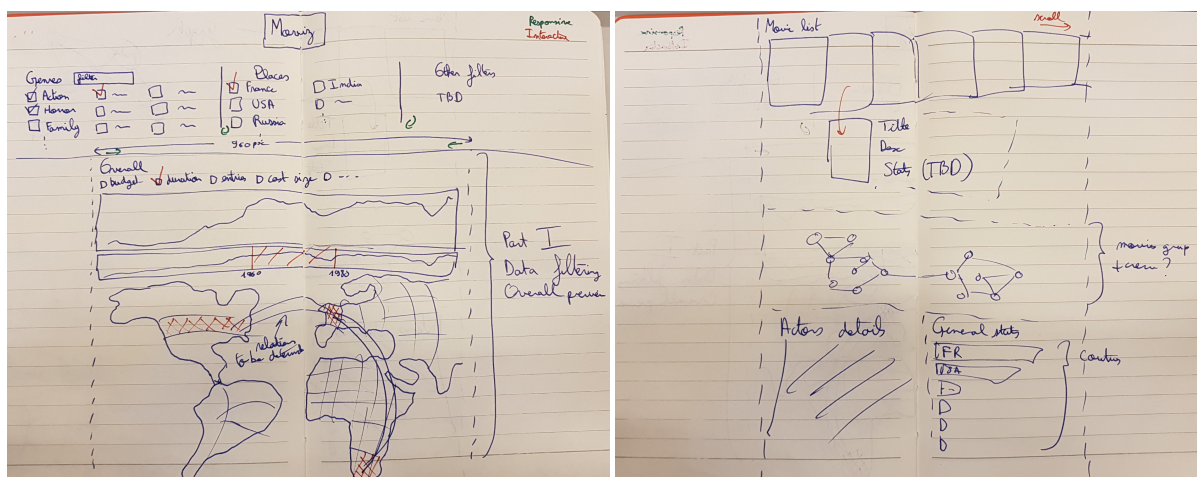 Moviz
Responsive
Interactive
Genres filter
Action
Horror
Family
Places
France
USA
Russia
India
Other filters
TBD
960px
Overall
budget duration entries cast size ...
1960 1980
relations
to be determined
Part I
Data filtering
Overall preview
Movie list
scroll
Title
Desc
Stats (TBD)
movies graph
+ crew?
Actors details
General stats
FR
USA